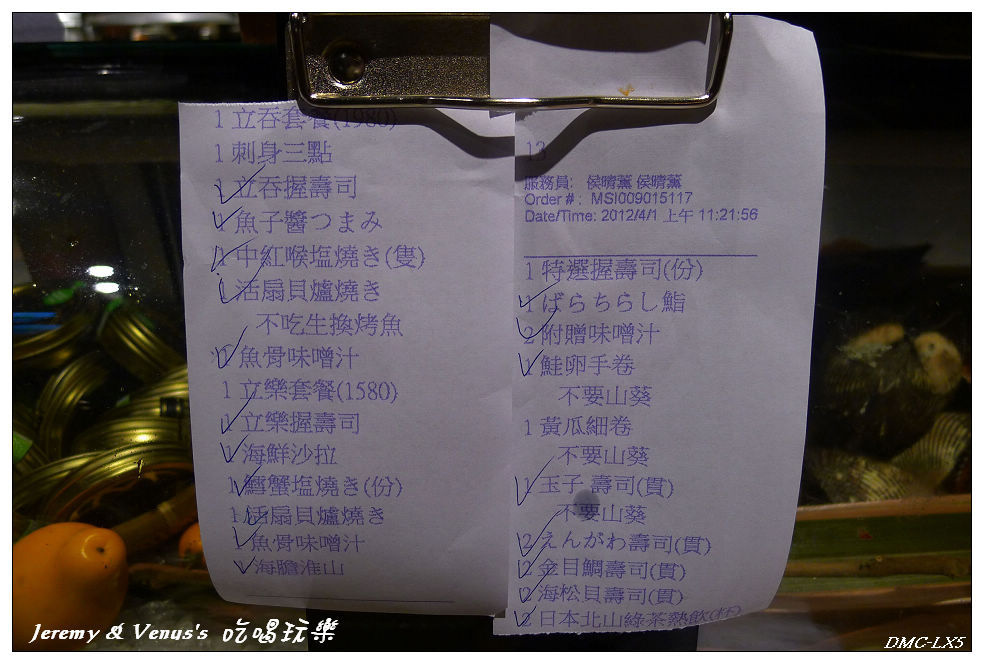 1 立吞套餐(1980)
1 刺身三點
1 立吞握壽司
1 魚子醬つまみ
1 中紅喉塩燒き(隻)
1 活扇貝爐燒き
不吃生換烤魚
1 魚骨味噌汁
1 立樂套餐(1580)
1 立樂握壽司
1 海鮮沙拉
1 鱈蟹塩燒き(份)
1 活扇貝爐燒き
1 魚骨味噌汁
海膽淮山
13
服務員: 侯晴薰 侯晴薰
Order # : MSI009015117
Date/Time: 2012/4/1 上午 11:21:56
1 特選握壽司(份)
1 ばらちらし鮨
2 附贈味噌汁
1 鮭卵手卷
不要山葵
1 黃瓜細卷
不要山葵
1 玉子 壽司(貫)
不要山葵
2 えんがわ壽司(貫)
2 金目鯛壽司(貫)
2 海松貝壽司(貫)
2 日本北山綠茶熱飲(杯)
Jeremy & Venus's 吃喝玩樂
DMC-LX5